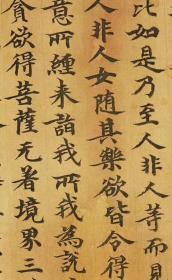 比如是乃至人非人等而見
人非人女隨其樂欲皆令得
意所纏来詣我所我為說
貪欲得菩薩无著境界三